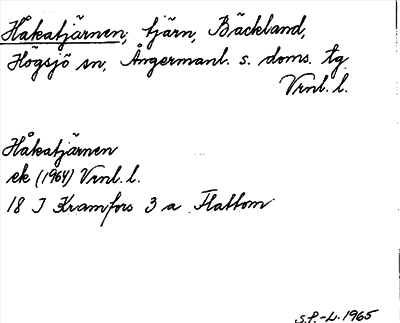 Håkatjärnen, tjärn, Bäckland,
Högsjö sn, Ångermanl. s. doms. tg
Vrnl. l.
Håkatjärnen
ek (1964) Vrnl. l.
18 J Kramfors 3 a Flattom
S.P.-L. 1965